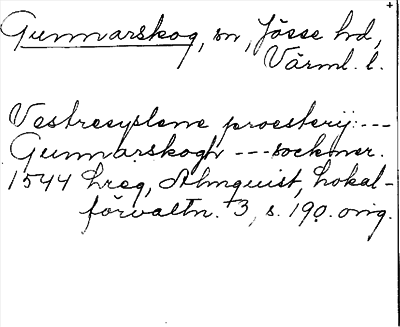 Gunnarskog, sn, Jösse hd,
Värml. l.
Vestresyslene proesterij: ---
Gunnarskogh --- sockner.
1544 hreg, Almquist, Lokal-
förvaltn. 3, s. 190. orig.